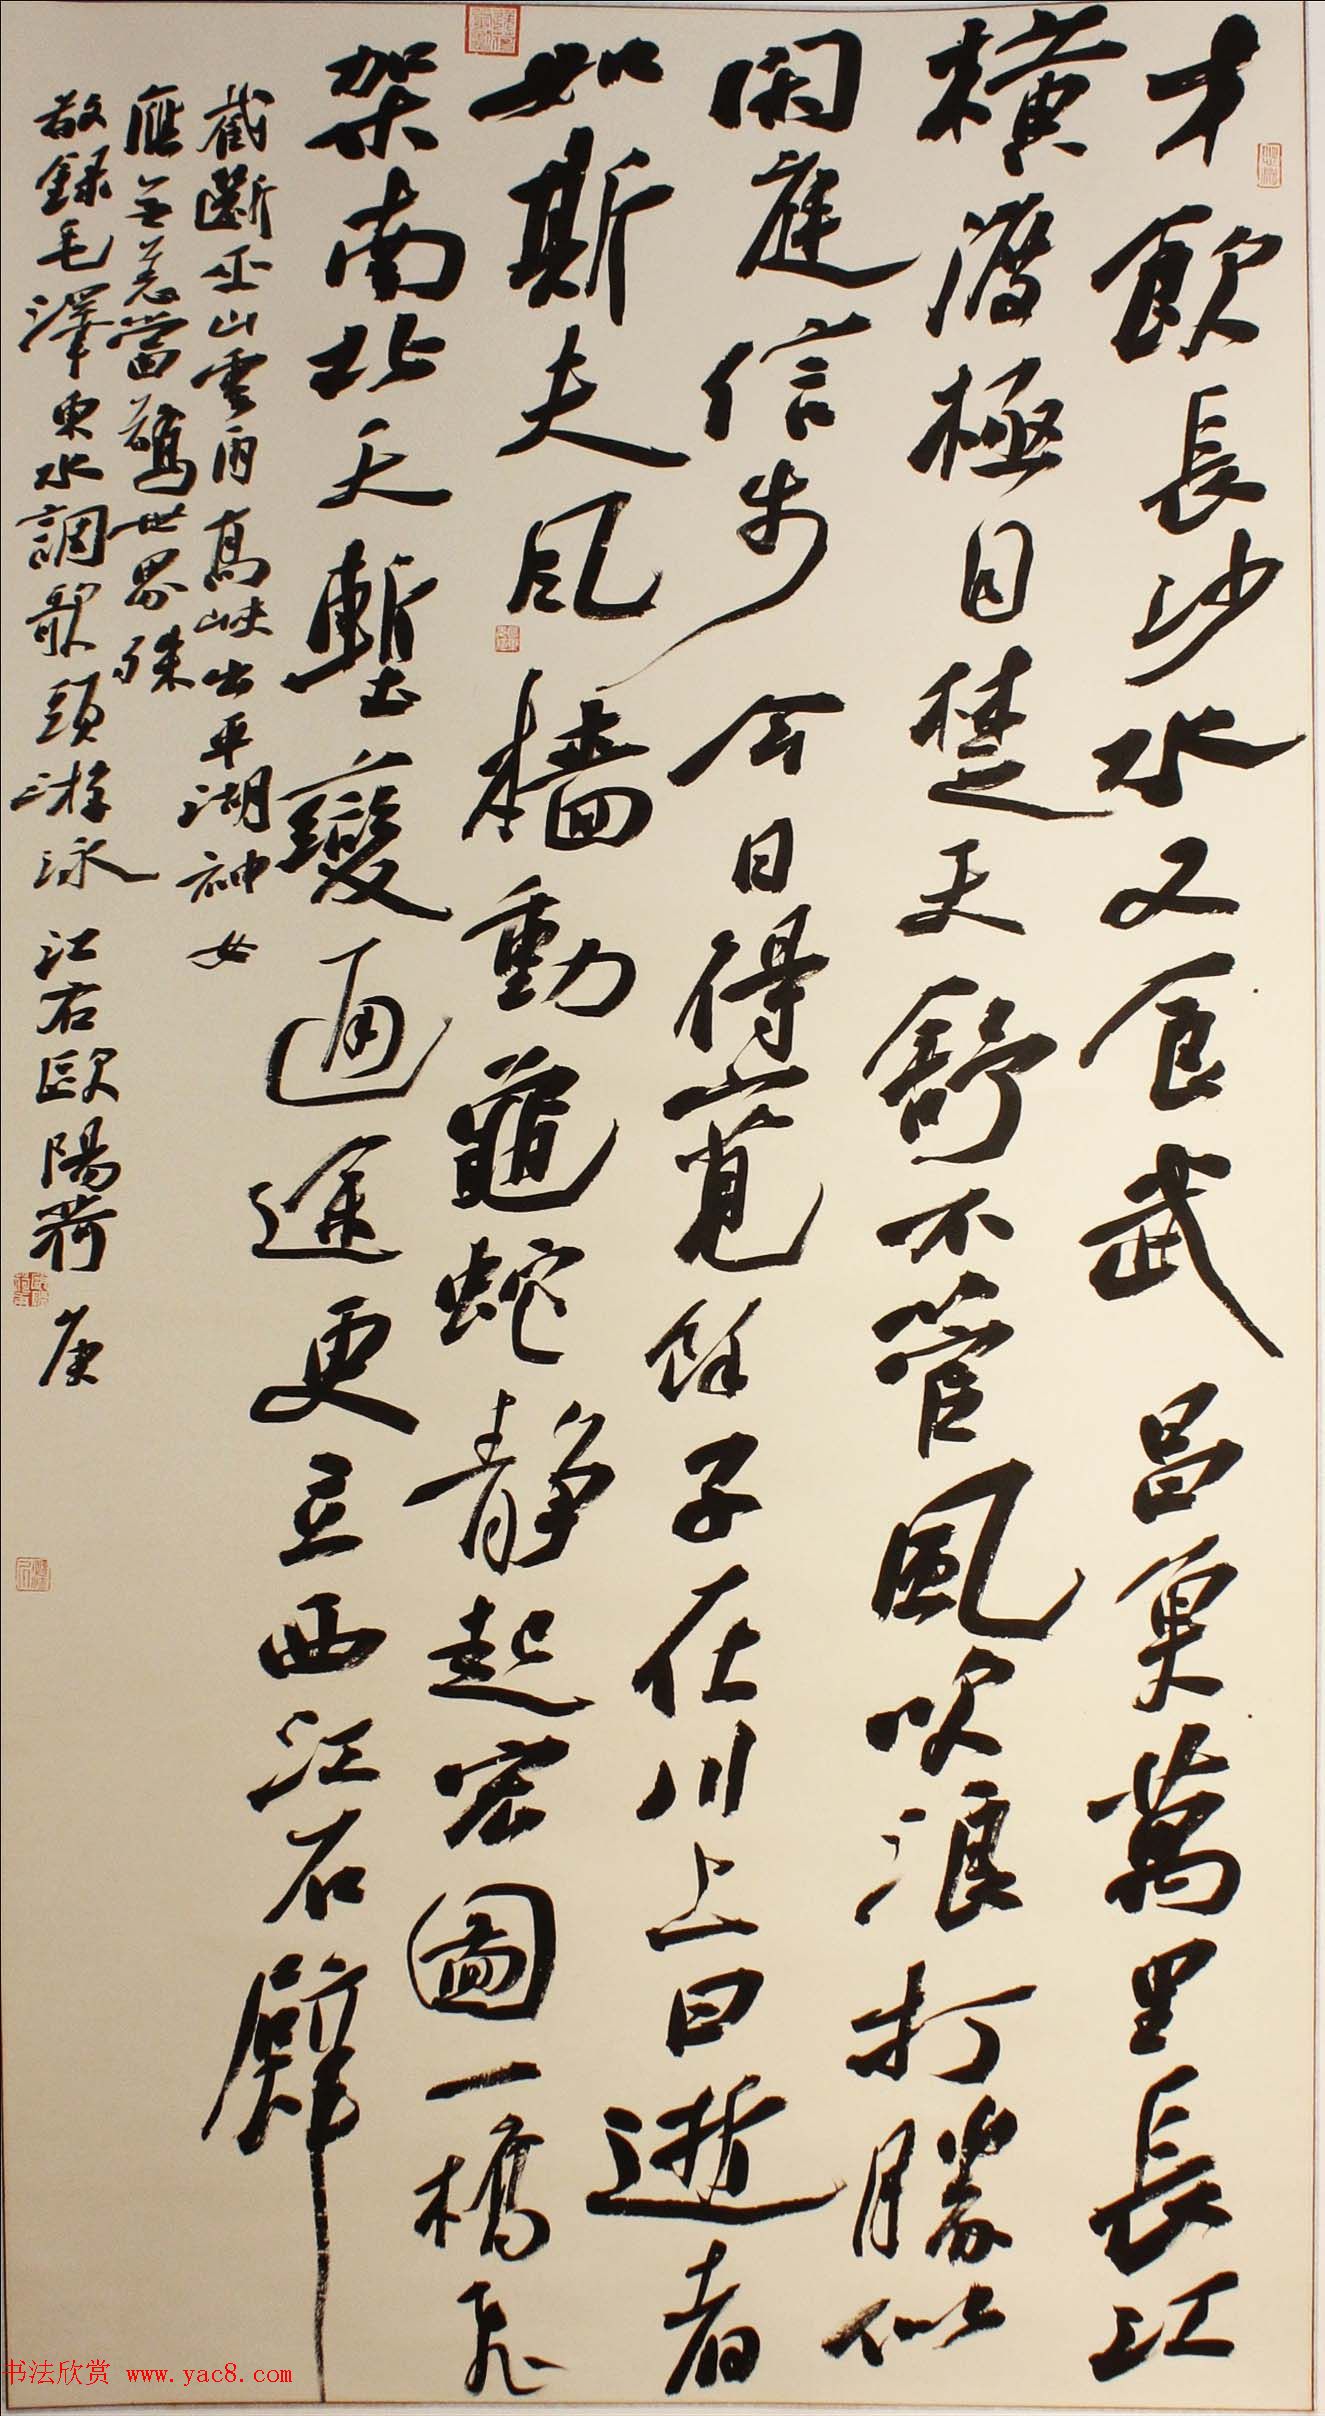 才飲長沙水又食武昌魚萬里長江
橫渡極目楚天舒不管風吹浪打勝似
閑庭信步今日得寬餘子在川上曰逝者
如斯夫风檣動龜蛇靜起宏圖一橋飛
架南北天塹變通途更立西江石壁
截斷巫山雲雨高峽出平湖神女
應無恙當驚世界殊
敬錄毛澤東水調歌頭游泳 江右歐陽荷庚
书法欣赏 www.yac8.com